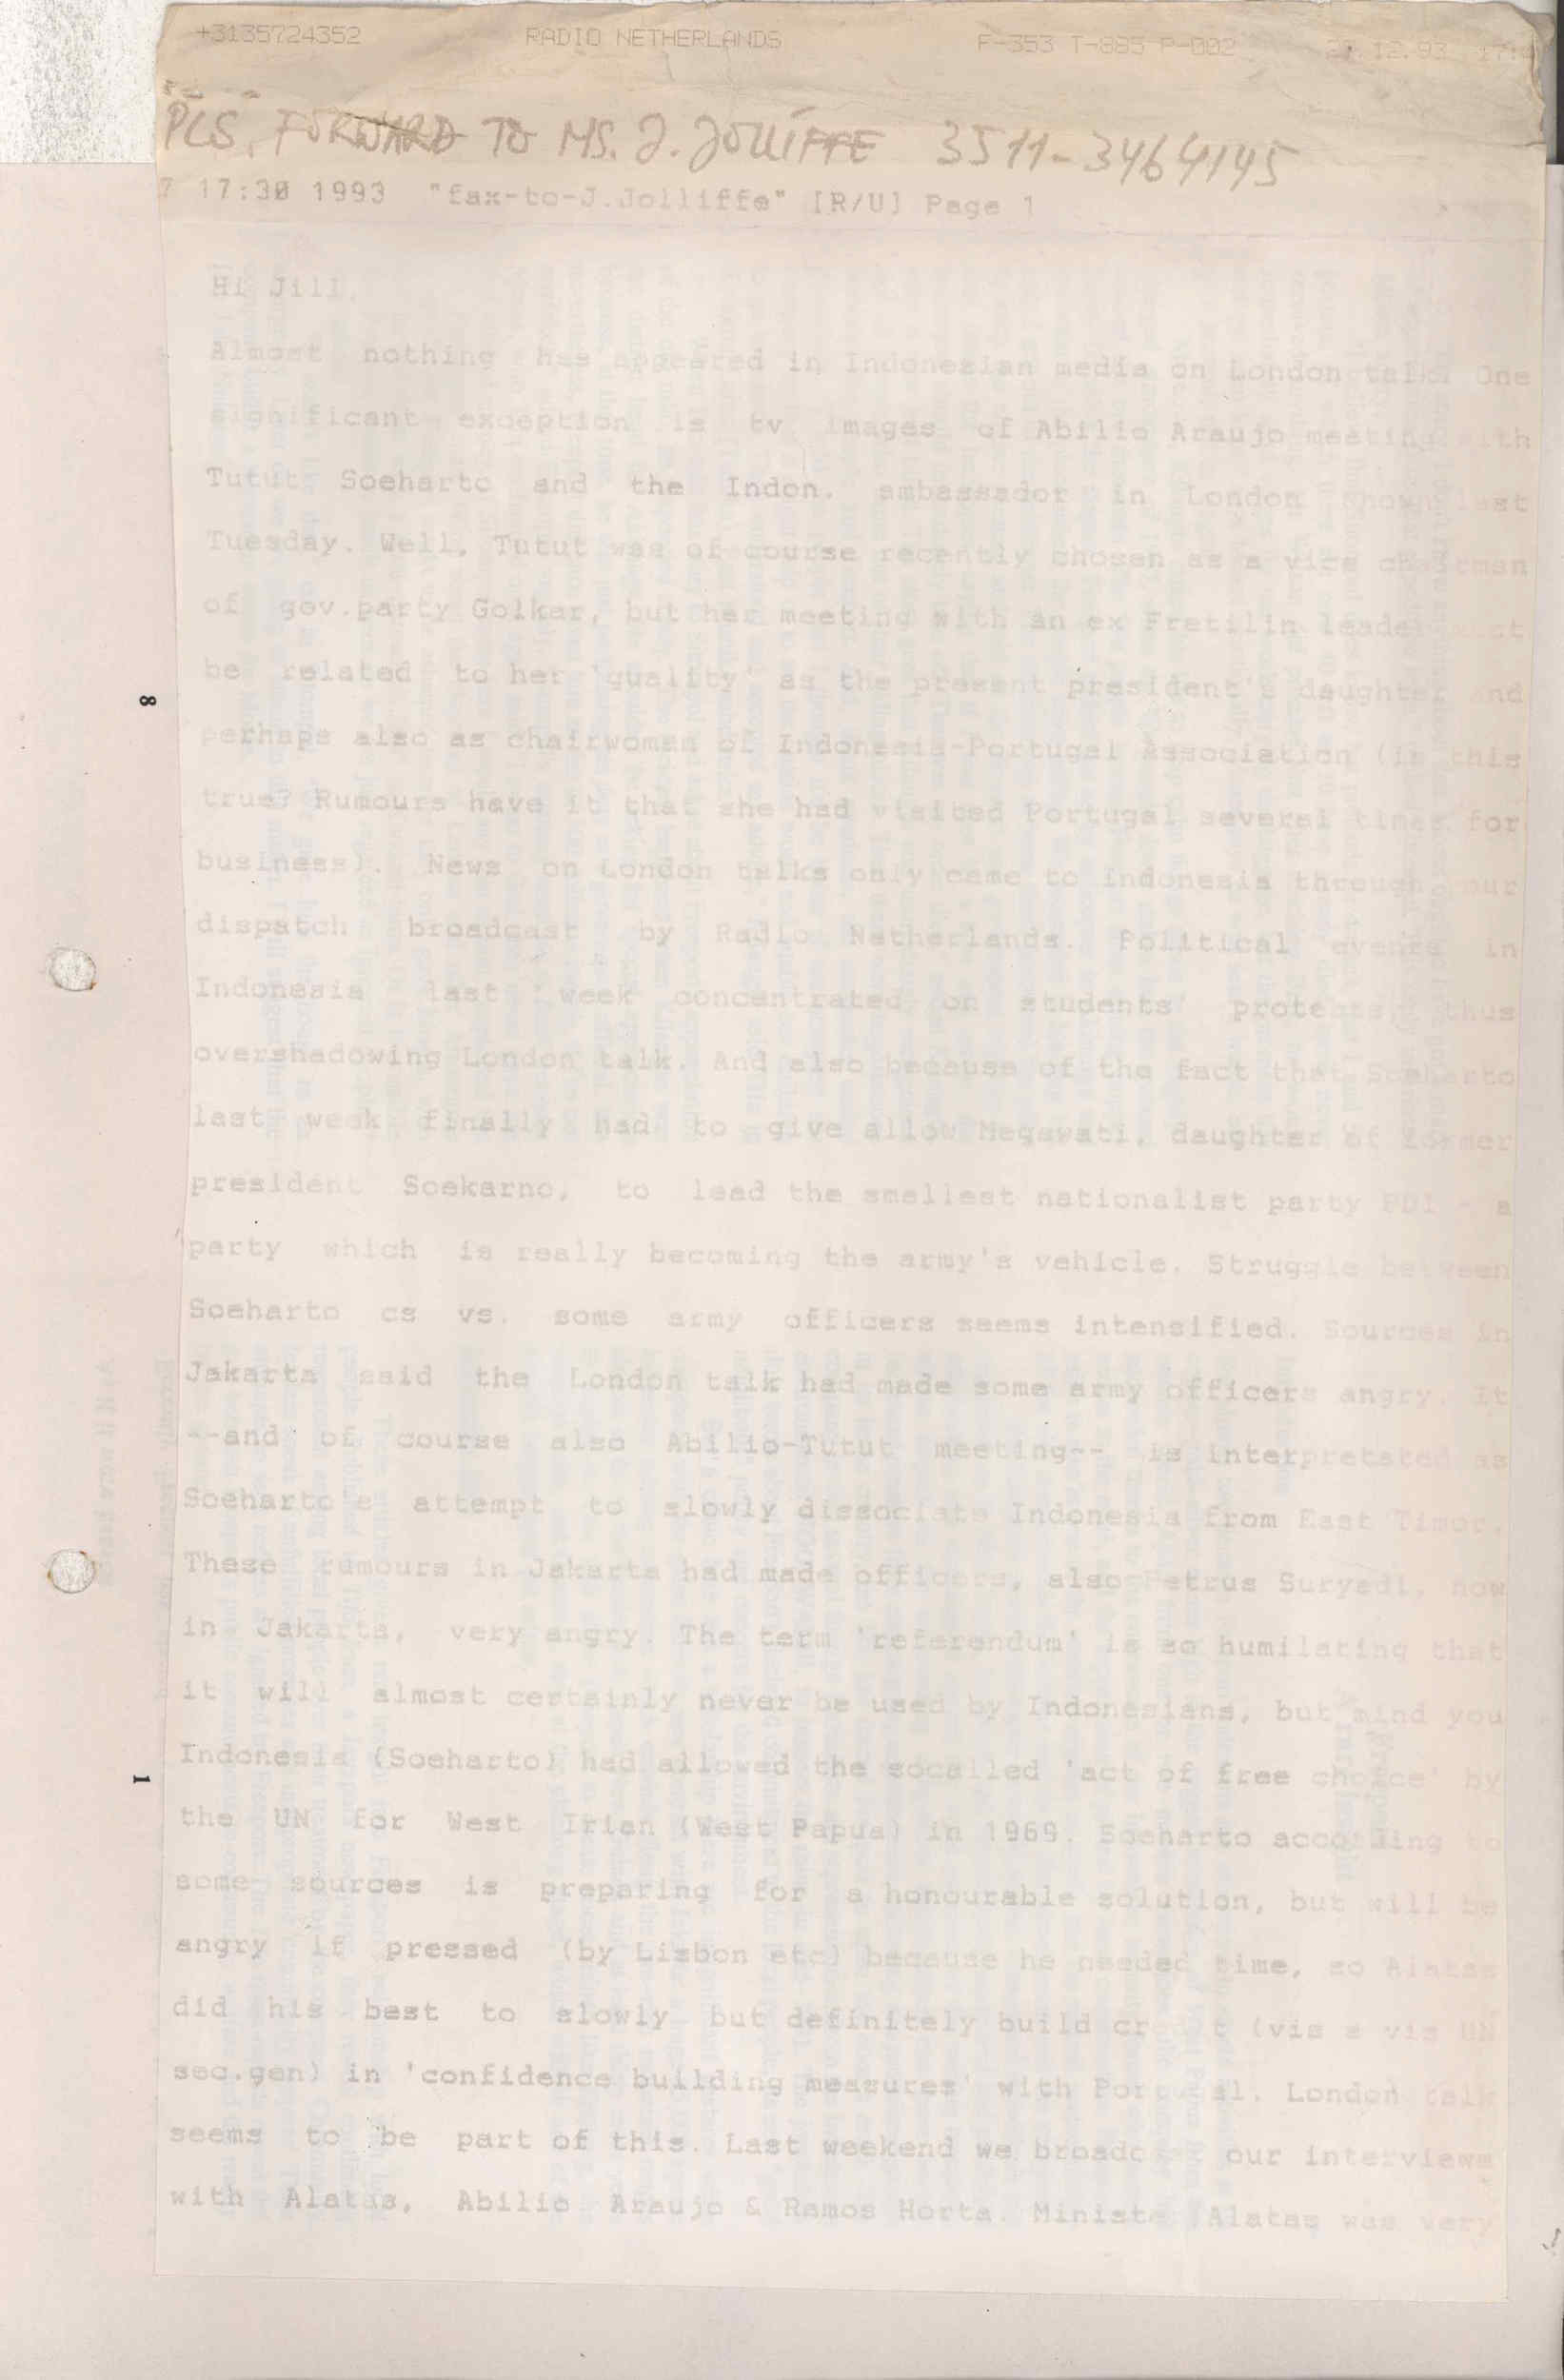 +3135724352 RADIO NETHERLANDS F-353 T-885 P-002 27.12.93
PLS. FORWARD TO MS. J. JOLLIFFE 3511-3464145
7 17:30 1993 "fax-to-J.Jolliffe" [R/U] Page 1
Hi Jill,
Almost nothing has appeared in Indonesian media on London talk. One
significant exception is tv images of Abilio Araujo meeting with
Tutut Soeharto and the Indon. ambassador in London shown last
Tuesday. Well, Tutut was of course recently chosen as a vice chairman
of gov.party Golkar, but her meeting with an ex Fretilin leader must
be related to her 'quality' as the present president's daughter and
perhaps also as chairwoman of Indonesia-Portugal Association (is this
true? Rumours have it that she had visited Portugal several times for
business). News on London talks only came to Indonesia through our
dispatch broadcast by Radio Netherlands. Political events in
Indonesia last week concentrated on students' protests, thus
overshadowing London talk. And also because of the fact that Soeharto
last week finally had to give allow Megawati, daughter of former
president Soekarno, to lead the smallest nationalist party PDI - a
party which is really becoming the army's vehicle. Struggle between
Soeharto cs vs. some army officers seems intensified. Sources in
Jakarta said the London talk had made some army officers angry. It
--and of course also Abilio-Tutut meeting-- is interpretated as
Soeharto's attempt to slowly dissociate Indonesia from East Timor.
These rumours in Jakarta had made officers, also Petrus Suryadi, now
in Jakarta, very angry. The term 'referendum' is so humilating that
it will almost certainly never be used by Indonesians, but mind you
Indonesia (Soeharto) had allowed the socalled 'act of free choice' by
the UN for West Irian (West Papua) in 1969. Soeharto according to
some sources is preparing for a honourable solution, but will be
angry if pressed (by Lisbon etc) because he needed time, so Alatas
did his best to slowly but definitely build credit (vis a vis UN
sec.gen) in 'confidence building measures' with Portugal. London talk
seems to be part of this. Last weekend we broadcast our interviews
with Alatas, Abilio Araujo & Ramos Horta. Minister Alatas was very
8
1